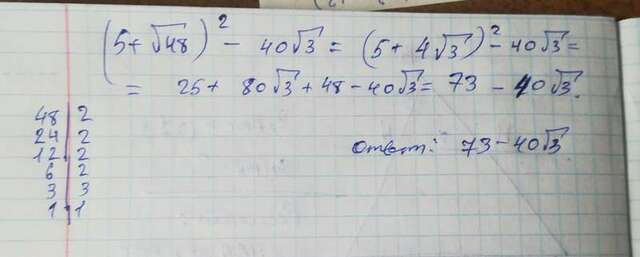 (5+√48)² - 40√3 = (5+ 4√3)² - 40√3 =
= 25+ 80√3 + 48 - 40√3 = 73 - 40√3.
48 | 2
24 | 2
12 | 2
6 | 2
3 | 3
1 | 1
Ответ: 73-40√3